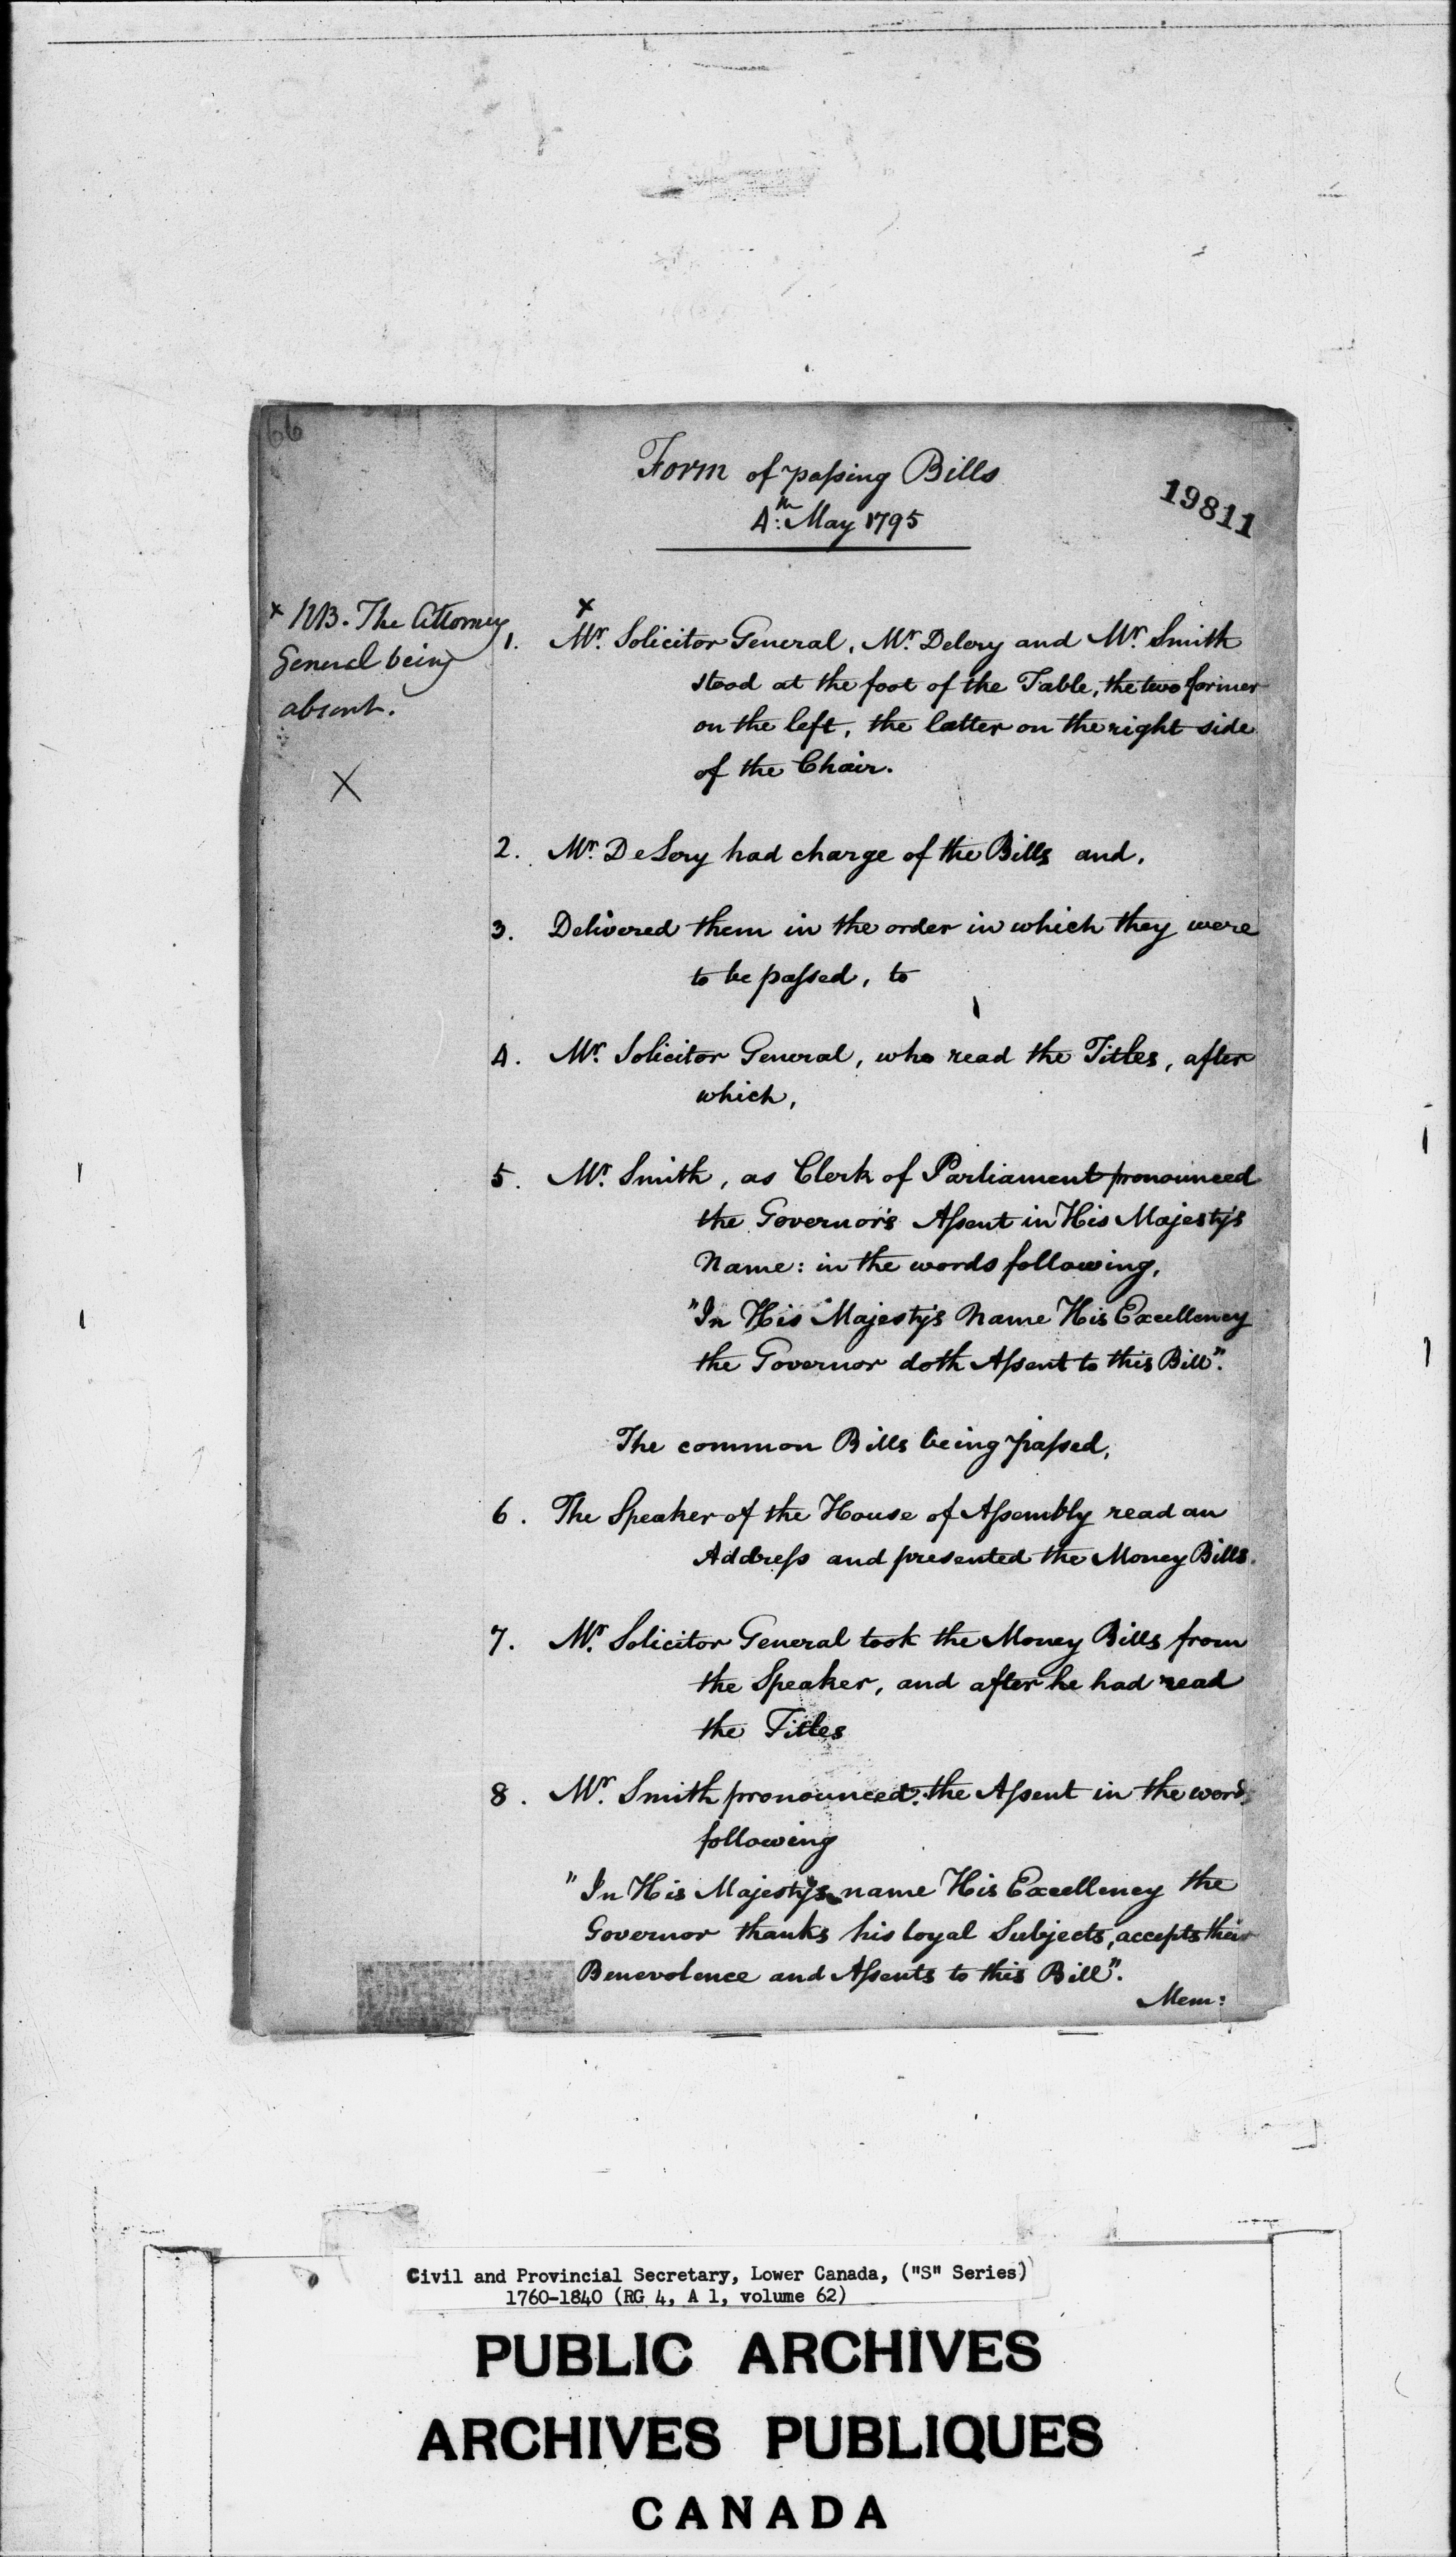 66
Form of paſsing Bills
4th: May 1795
19811
x NB. The Attorney
General being
absent.
X
x
1. Mr. Solicitor General, Mr. Delery and Mr. Smith
stood at the foot of the Table, the two former
on the left, the latter on the right side
of the Chair.
2. Mr. DeLery had charge of the Bills and,
3. Delivered them in the order in which they were
to be paſsed, to
4. Mr. Solicitor General, who read the Titles, after
which,
5. Mr. Smith, as Clerk of Parliament pronounced
the Governor's Aſsent in His Majesty's
Name: in the words following,
"In His Majesty's Name His Excellency
the Governor doth Aſsent to this Bill".
The common Bills being paſsed,
6. The Speaker of the House of Aſsembly read an
Addreſs and presented the Money Bills.
7. Mr. Solicitor General took the Money Bills from
the Speaker, and after he had read
the Titles
8. Mr. Smith pronounced the Aſsent in the words
following
"In His Majesty's name His Excellency the
Governor thanks his loyal Subjects, accepts their
Benevolence and Aſsents to this Bill".
Mem:
Civil and Provincial Secretary, Lower Canada, ("S" Series)
1760-1840 (RG 4, A 1, volume 62)
PUBLIC ARCHIVES
ARCHIVES PUBLIQUES
CANADA